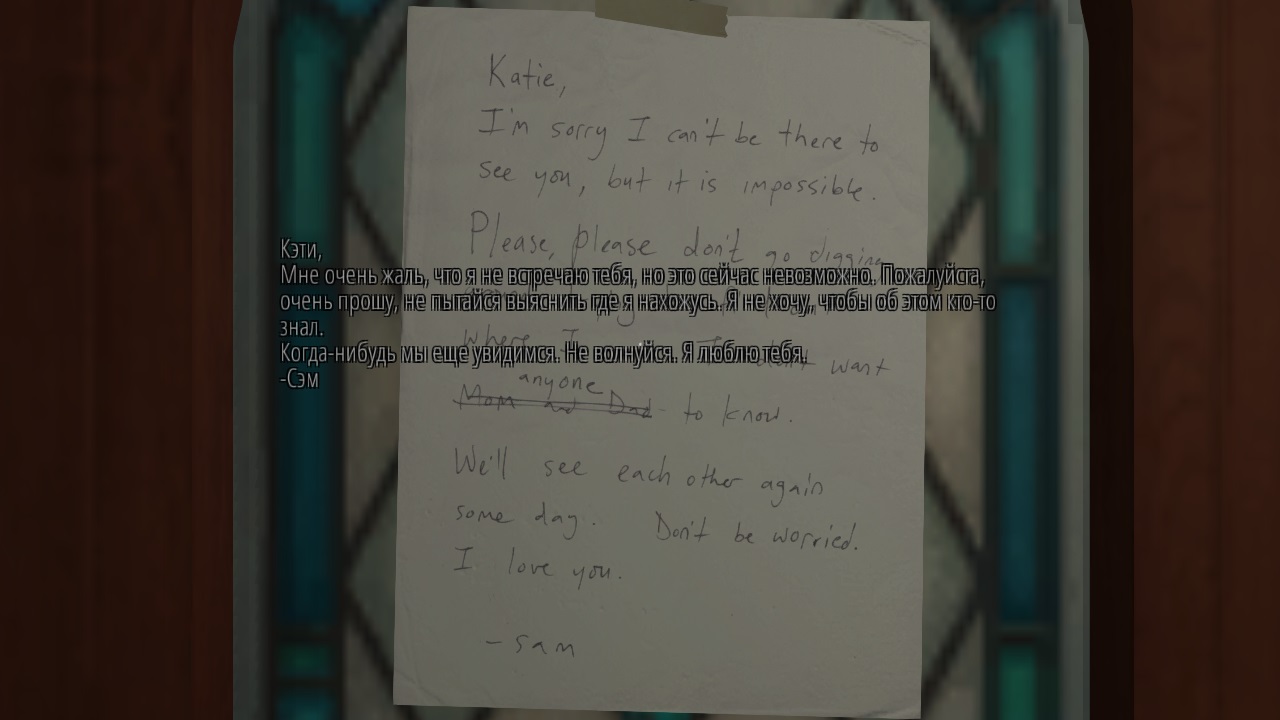 Katie,
I'm sorry I can't be there to
see you, but it is impossible.
Please, please don't go digging
Кэти,
Мне очень жаль, что я не встречаю тебя, но это сейчас невозможно. Пожалуйста,
очень прошу, не пытайся выяснить где я нахожусь. Я не хочу, чтобы об этом кто-то
знал.
Когда-нибудь мы еще увидимся. Не волнуйся. Я люблю тебя.
-Сэм
where I don't want
anyone
Mom and Dad to know.
We'll see each other again
some day. Don't be worried.
I love you.
- Sam